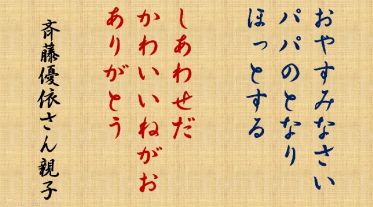 おやすみなさい
パパのとなり
ほっとする
しあわせだ
かわいいねがお
ありがとう
斉藤優依さん親子